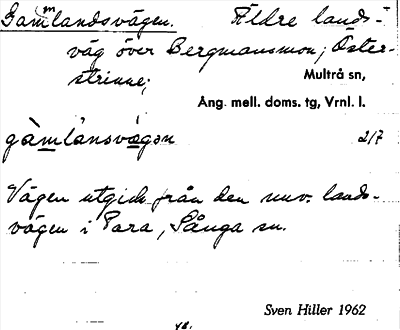 Gammlandsvägen. Äldre lands-
väg över Bergmansmon; Öster-
strinne;
Multrå sn,
Ång. mell. doms. tg, Vrnl. l.
gàmlànsvägən 2/7
Vägen utgick från den nuv. lands-
vägen i Para, Sånga sn.
Sven Hiller 1962